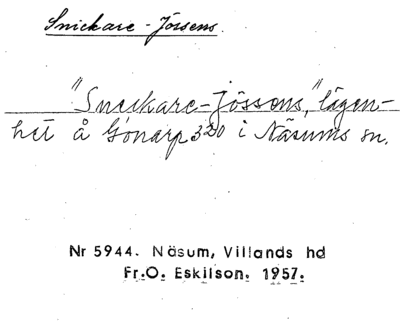 Snickare-Jössens.
"Snickare-Jössens," lägen-
het å Gonarp 3²⁰ i Näsums sn.
Nr 5944. Näsum, Villands hd
Fr.O. Eskilson. 1957.